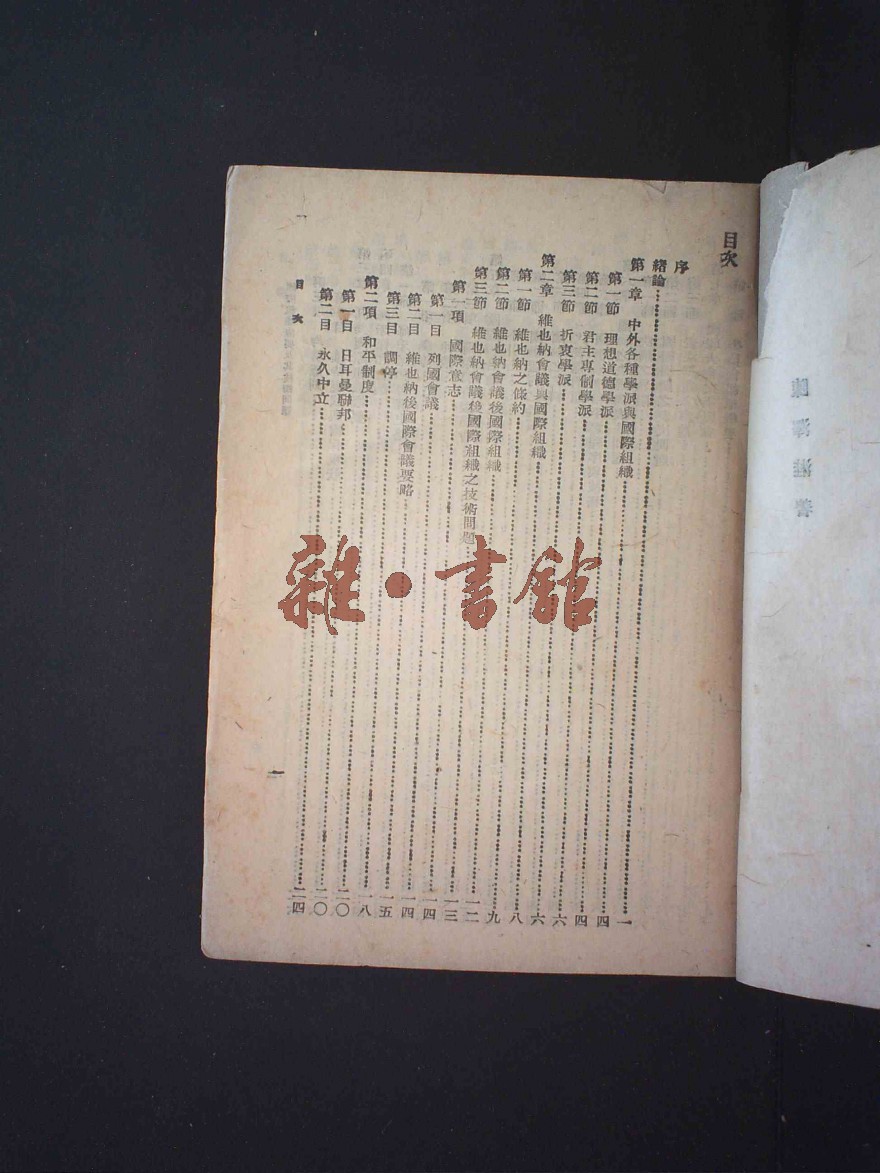 目次
序
緒論……一
第一章 中外各種學派與國際組織……四
第一節 理想道德學派……四
第二節 君主專制學派……六
第三節 折衷學派……六
第二章 維也納會議與國際組織……八
第一節 維也納之條約……九
第二節 維也納會議後國際組織……一二
第三節 維也納會議後國際組織之技術問題……一三
第一項 國際意志……一四
第一目 列國會議……一四
第二目 維也納後國際會議要略……一五
第三目 調停……一八
第二項 和平制度……二〇
第一目 日耳曼聯邦……二〇
第二目 永久中立……二四
目次
一
雜·書館
陳澤 著